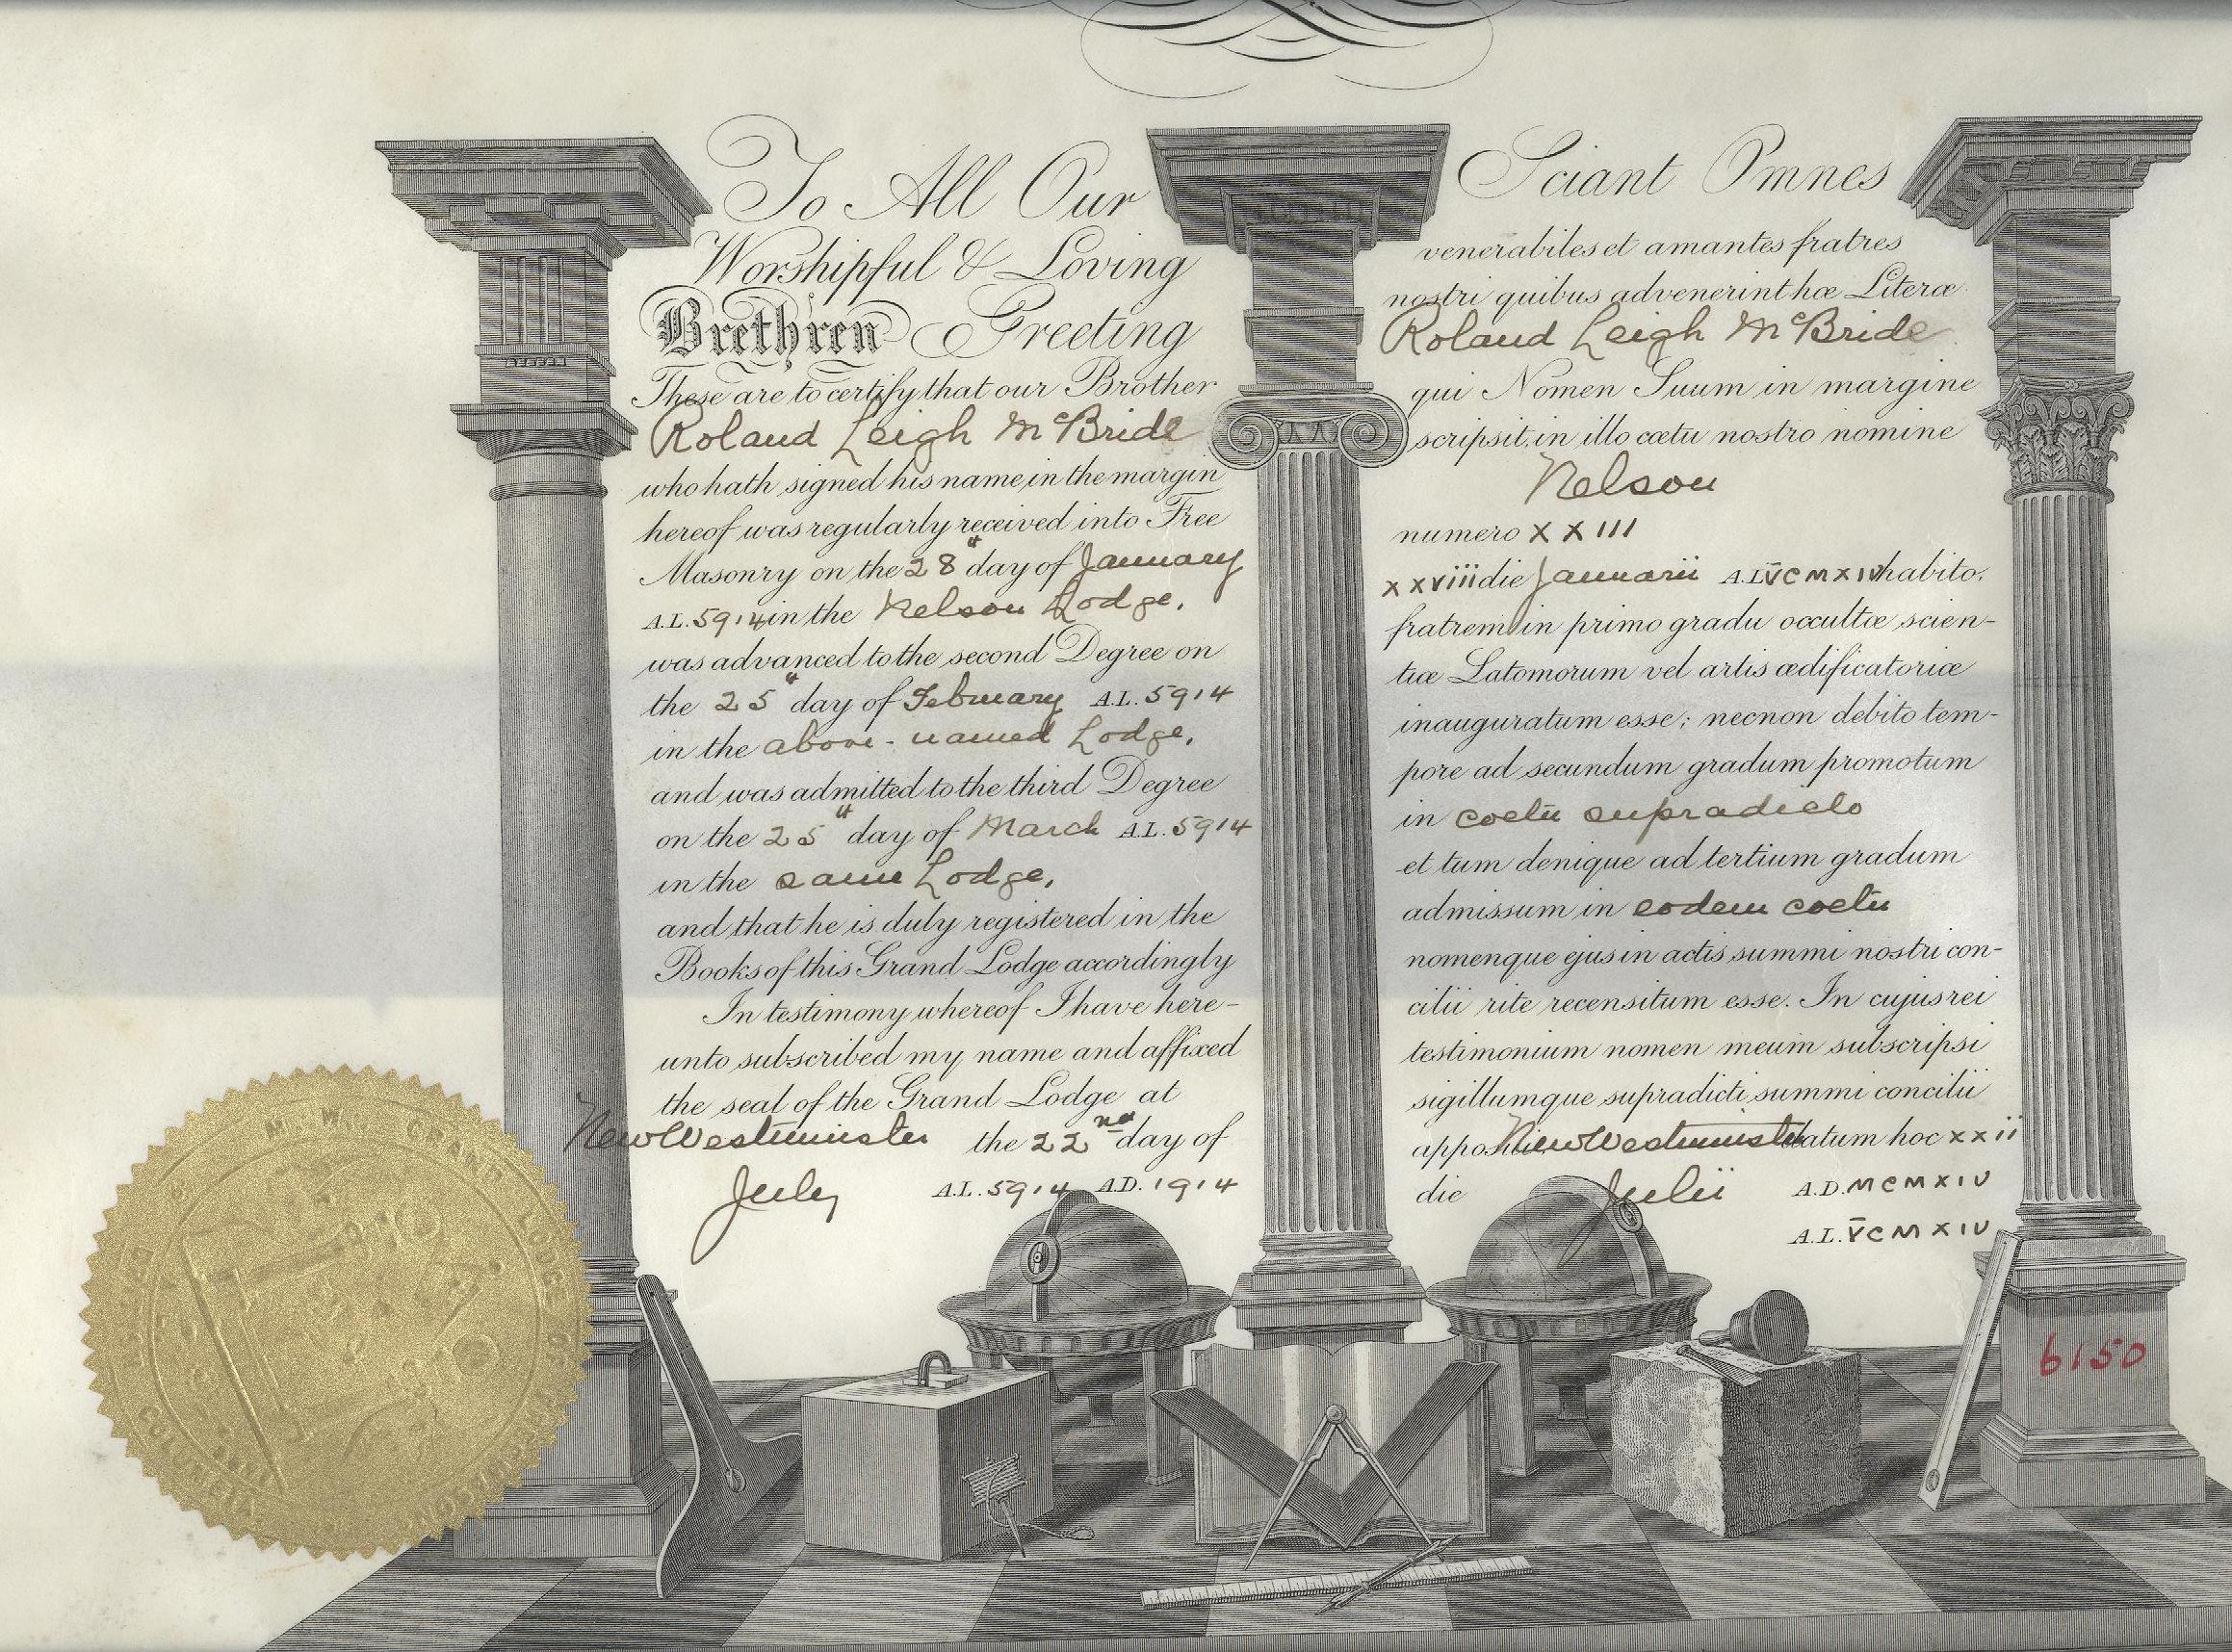 To All Our
Worshipful & Loving
Brethren Greeting
These are to certify that our Brother
Roland Leigh McBride
who hath signed his name in the margin
hereof was regularly received into Free
Masonry on the 28th day of January
A.L. 5914 in the Nelson Lodge,
was advanced to the second Degree on
the 25th day of February A.L. 5914
in the above-named Lodge,
and was admitted to the third Degree
on the 25th day of March A.L. 5914
in the same Lodge,
and that he is duly registered in the
Books of this Grand Lodge accordingly
In testimony whereof I have here-
unto subscribed my name and affixed
the seal of the Grand Lodge at
New Westminster the 22nd day of
July A.L. 5914 A.D. 1914
Sciant Omnes
venerabiles et amantes fratres
nostri quibus advenerint hœ Literœ
Roland Leigh McBride
qui Nomen Suum in margine
scripsit, in illo cœtu nostro nomine
Nelson
numero XXIII
xxviii die Januarii A.L. V̄CMXIV habito,
fratrem in primo gradu occultœ scien-
tiœ Latomorum vel artis œdificatoriœ
inauguratum esse; necnon debito tem-
pore ad secundum gradum promotum
in coetu supradicto
et tum denique ad tertium gradum
admissum in eodem coetu
nomenque ejus in actis summi nostri con-
cilii rite recensitum esse. In cujus rei
testimonium nomen meum subscripsi
sigillumque supradicti summi concilii
New Westminster datum hoc xxii
die Julii A.D. MCMXIV
A.L. V̄CMXIV
6150
M. W. GRAND LODGE OF
COLUMBIA